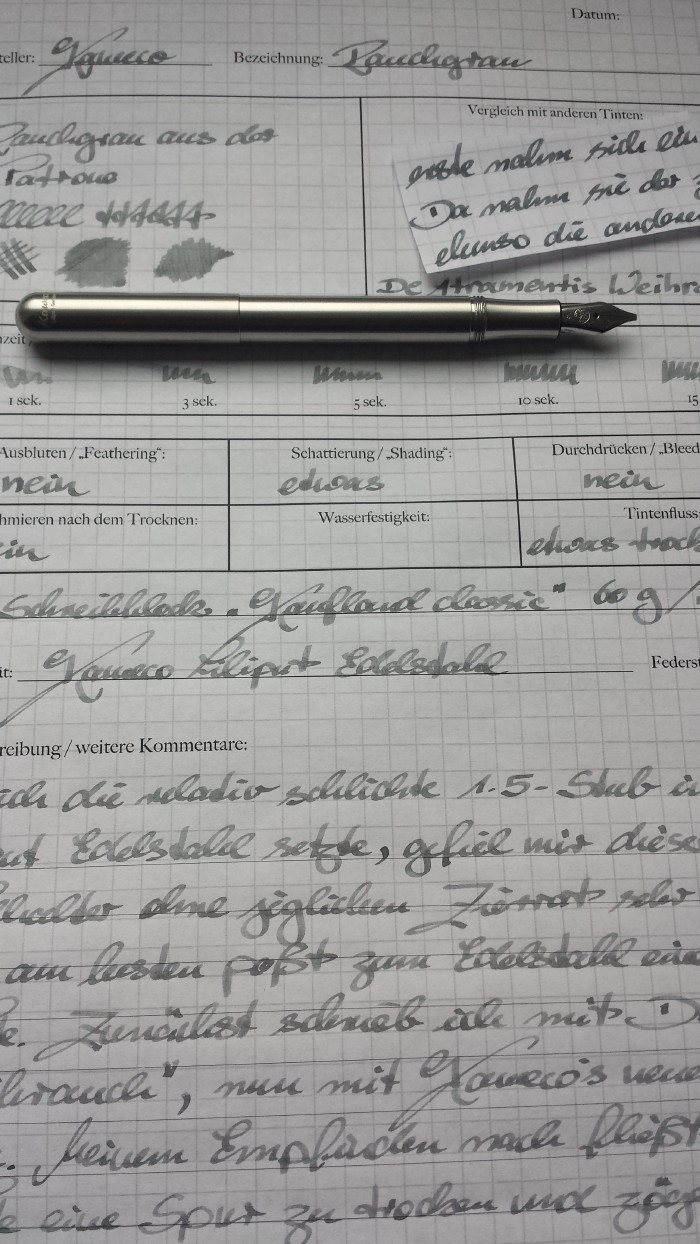 Datum:
teller: Kaweco Bezeichnung: Rauchgrau
Vergleich mit anderen Tinten:
Rauchgrau aus der
Patrone
erste nahm sich ein
Da nahm sie der
ebenso die andere
De Atramentis Weihra
nzeit
1 sek. 3 sek. 5 sek. 10 sek. 15
Ausbluten / „Feathering“: Schattierung / „Shading“: Durchdrücken / „Bleed
nein etwas nein
hmieren nach dem Trocknen: Wasserfestigkeit: Tintenfluss:
ein etwas trock
Schreibblock „Kaufland classic“ 60 g/
it: Kaweco Liliput Edelstahl Federst
reibung / weitere Kommentare:
ich die relativ schlichte 1.5-Stub i
ut Edelstahl setzte, gefiel mir diese
halter ohne jeglichen Zierrat sehr
am besten paßt zum Edelstahl eine
e. Zunächst schrieb ich mit D
hrauch“, nun mit Kaweco's neue
Meinem Empfinden nach fließt
e eine Spur zu trocken und zög